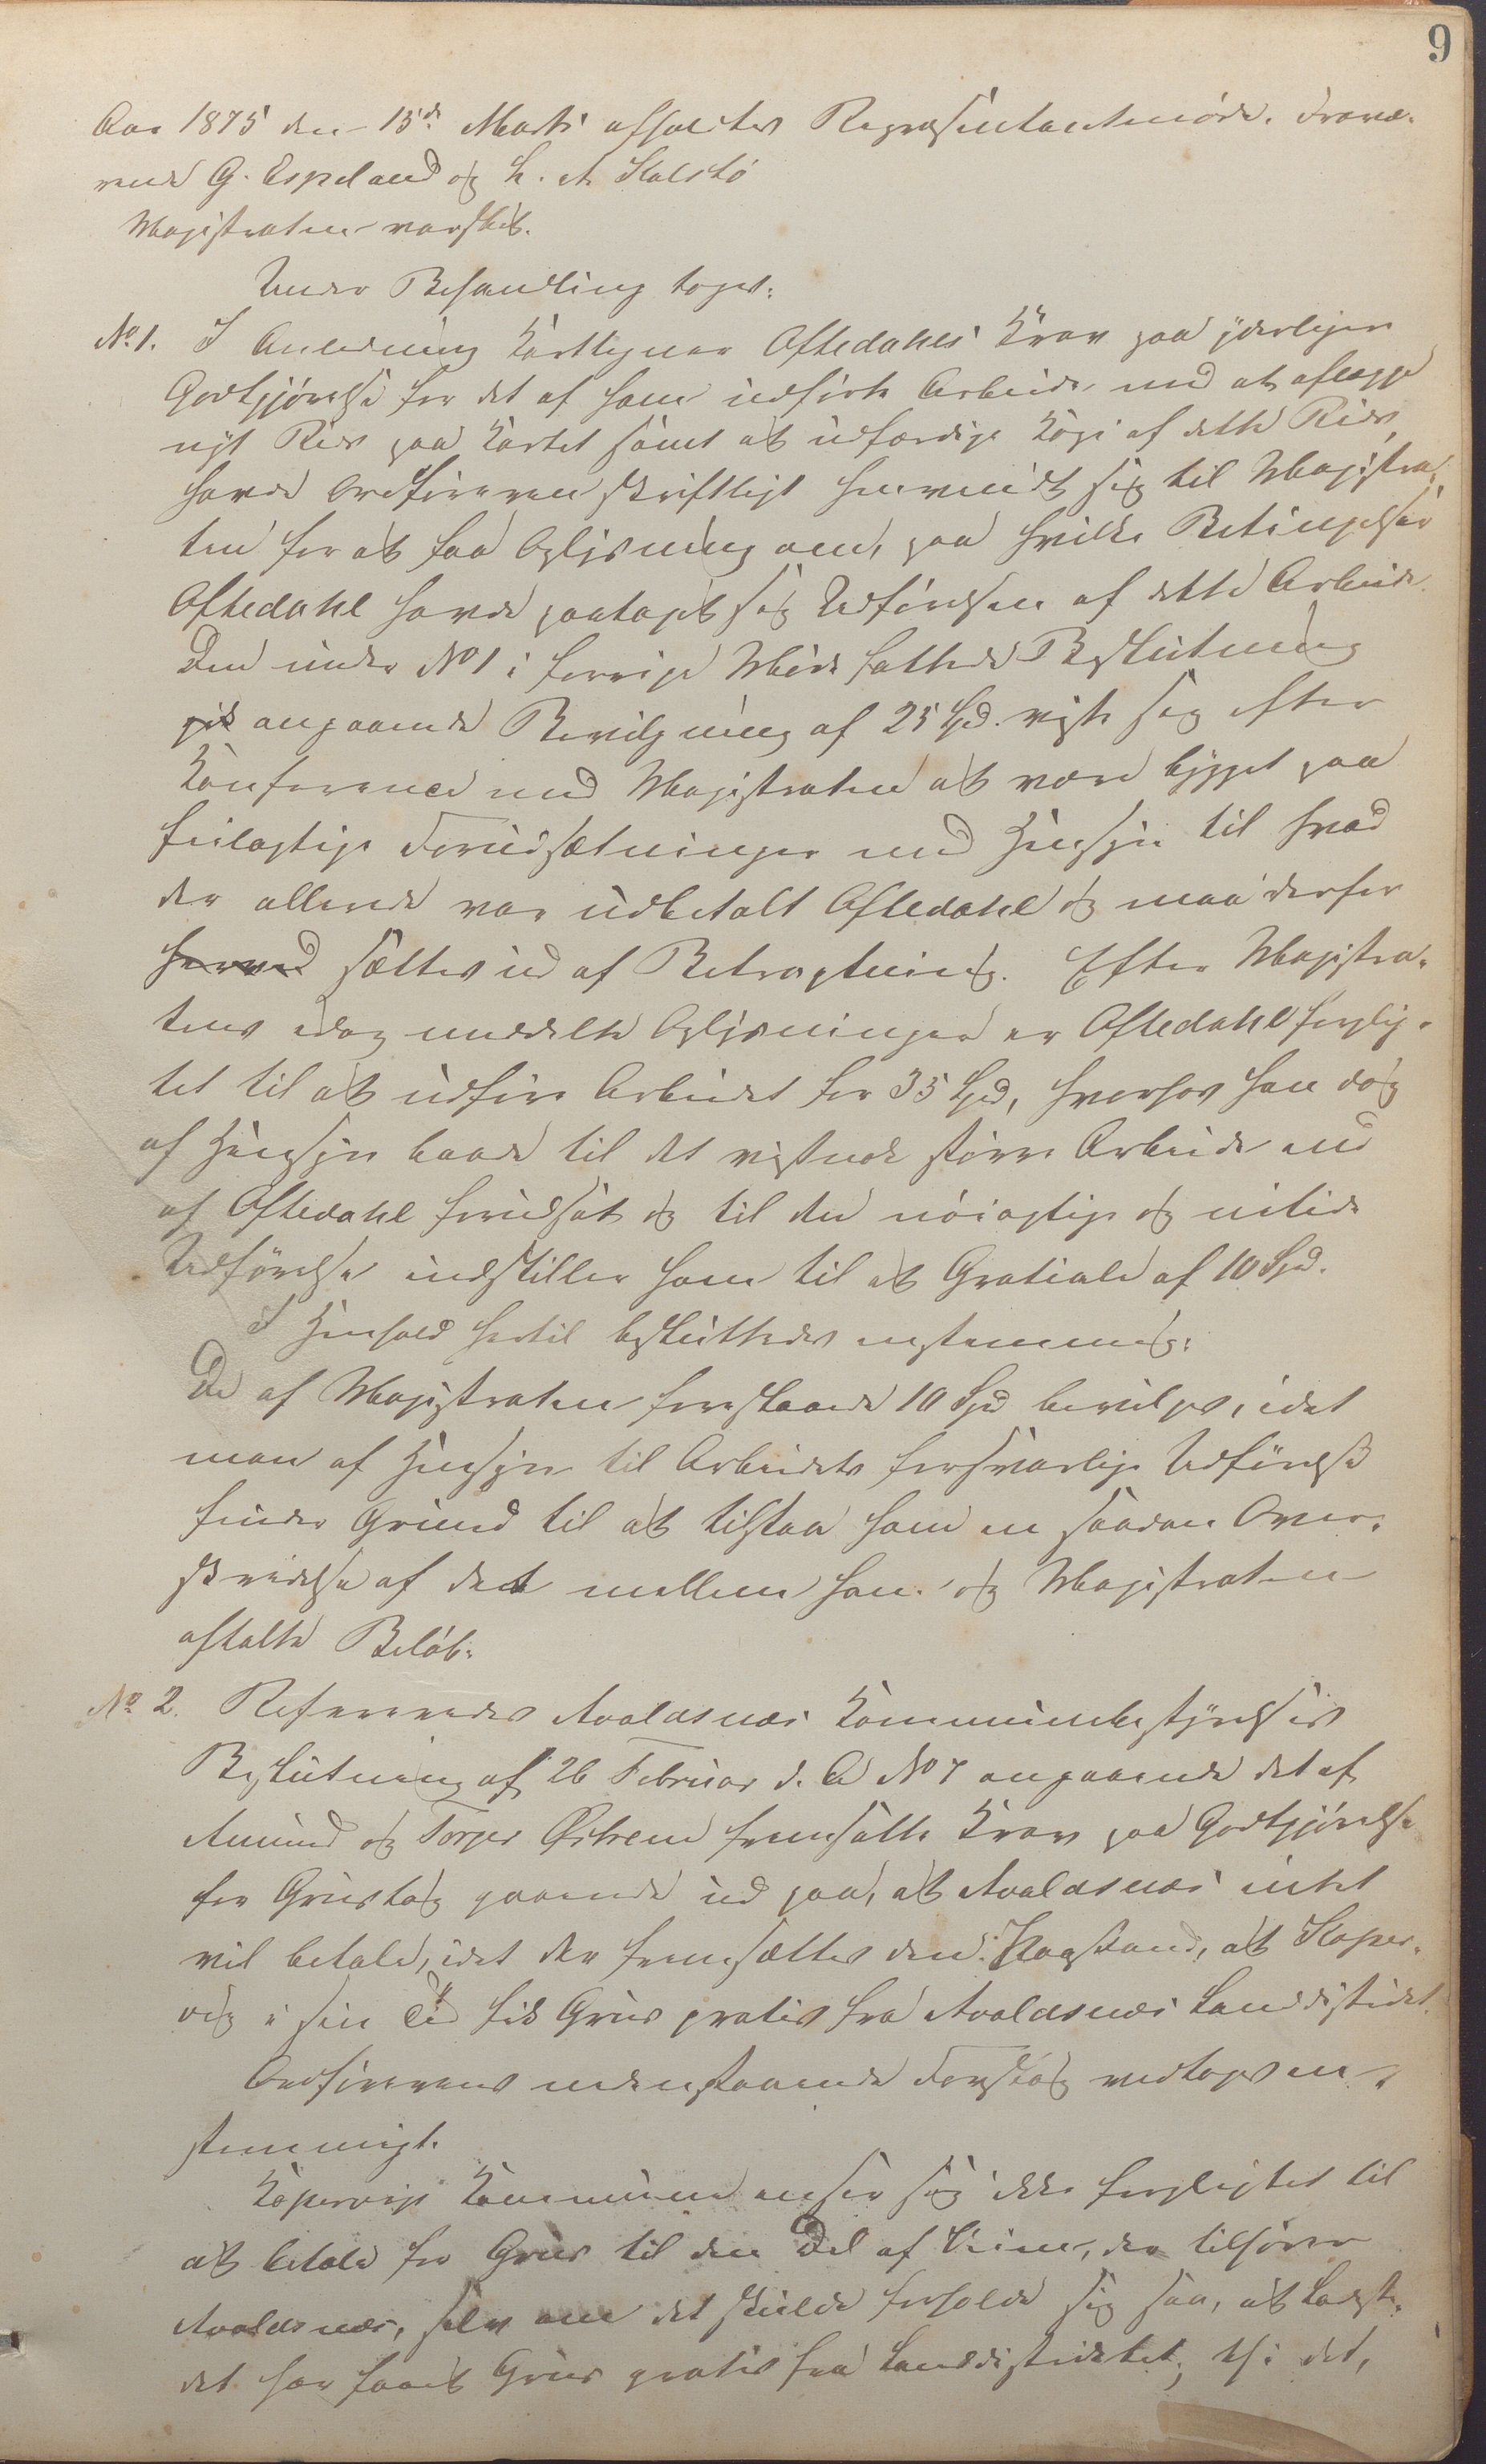 9
Aar 1875 den 15de Marts afholdtes Repræsentantmøde. Fravæ-
rende G. Espeland og L. A. Stalstø
Magistraten varslet.
Under Behandling toges:
No 1. I Anledning Karttegner Aftedahls Krav paa yderligere
Godtgjørelse for det af ham udførte Arbeide med at aflægge
nyt Rids paa Kartet samt at udfærdige Kopi af dette Rids,
havde Ordføreren skriftligt henvendt sig til Magistra-
ten for at faa Oplysning om, paa hvilke Betingelser
Aftedahl havde paataget sig Udførelsen af dette Arbeide.
Den under No 1 i forrige Møde fattede Beslutning
angaaende Bevilgning af 25 Spd. viste sig efter
Konference med Magistraten at være bygget paa
feilagtige Forudsætninger med Hensyn til hvad
der allerede var udbetalt Aftedahl og maa derfor
sættes ud af Betragtning. Efter Magistra-
tens idag meddelte Oplysninger er Aftedahl forplig-
tet til at udføre Arbeidet for 35 Spd, hvorhos han dog
af Hensyn baade til det vistnok større Arbeide end
af Aftedahl forudsat og til den nøiagtige og nitide
Udførelse indstiller ham til et Gratiale af 10 Spd.
I Henhold hertil besluttedes enstemmig:
De af Magistraten foreslaaede 10 Spd bevilges, idet
man af Hensyn til Arbeidets forsvarlige Udførelse
finder Grund til at tilstaa ham en saadan Over-
skridelse af det mellem ham og Magistraten
aftalte Beløb.
No 2. Refereredes Avaldsnæs Kommunebestyrelses
Beslutning af 26 Februar d. A No 7 angaaende det af
Amund og Torger Østrem fremsatte Krav paa Godtgjørelse
for Grustag gaaende ud paa, at Avaldsnæs intet
vil betale, idet der fremsættes den Paastand, at Koper-
vig i sin Tid fik Grus gratis fra Avaldsnæs Landdistrict.
Ordførerens nedenstaaende Forslag vedtoges en-
stemmigt.
Kopervigs Kommune anser sig ikke forpligtet til
at betale for Grus til den Del af Veien, der tilhører
Avaldsnæs, selv om det skulde forholde sig saa, at Ladeste-
det har faaet Grus gratis fra Landdistriktet; thi det,